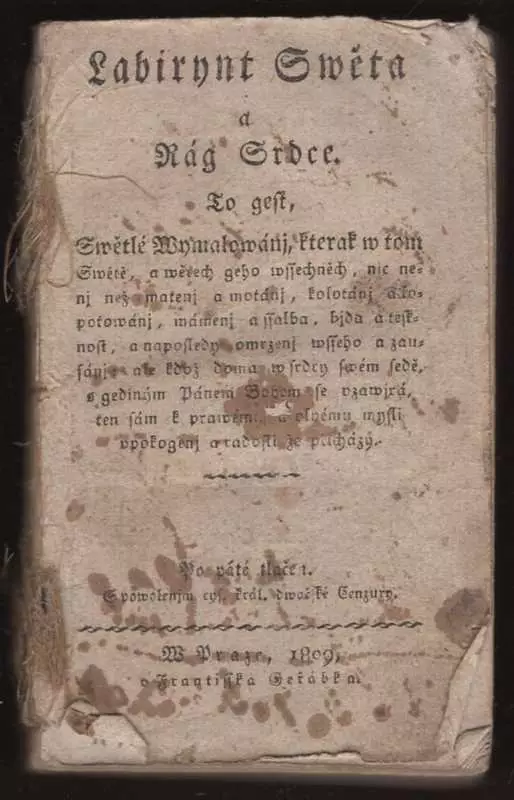 Labirynt Swěta
a
Rág Srdce.
To gest,
Swětlé Wymalowánj, kterak w tom
Swětě, a wěcech geho wssechněch, nic ne=
nj než matenj a motánj, kolotánj a lo=
potowánj, mámenj a ssalba, bjda a tesk=
nost, a naposledy omrzenj wsseho a zau=
fánj; ale když doma w srdcy swém sedě,
s gediným Pánem Bohem se vzawjrá,
ten sám k prawému a plnému mysli
vpokogenj a radosti že přicházý.
Po páté tlačen.
S powolenjm cys. král. dworské Cenzury.
W Praze, 1809,
v Frantisska Geřábka.